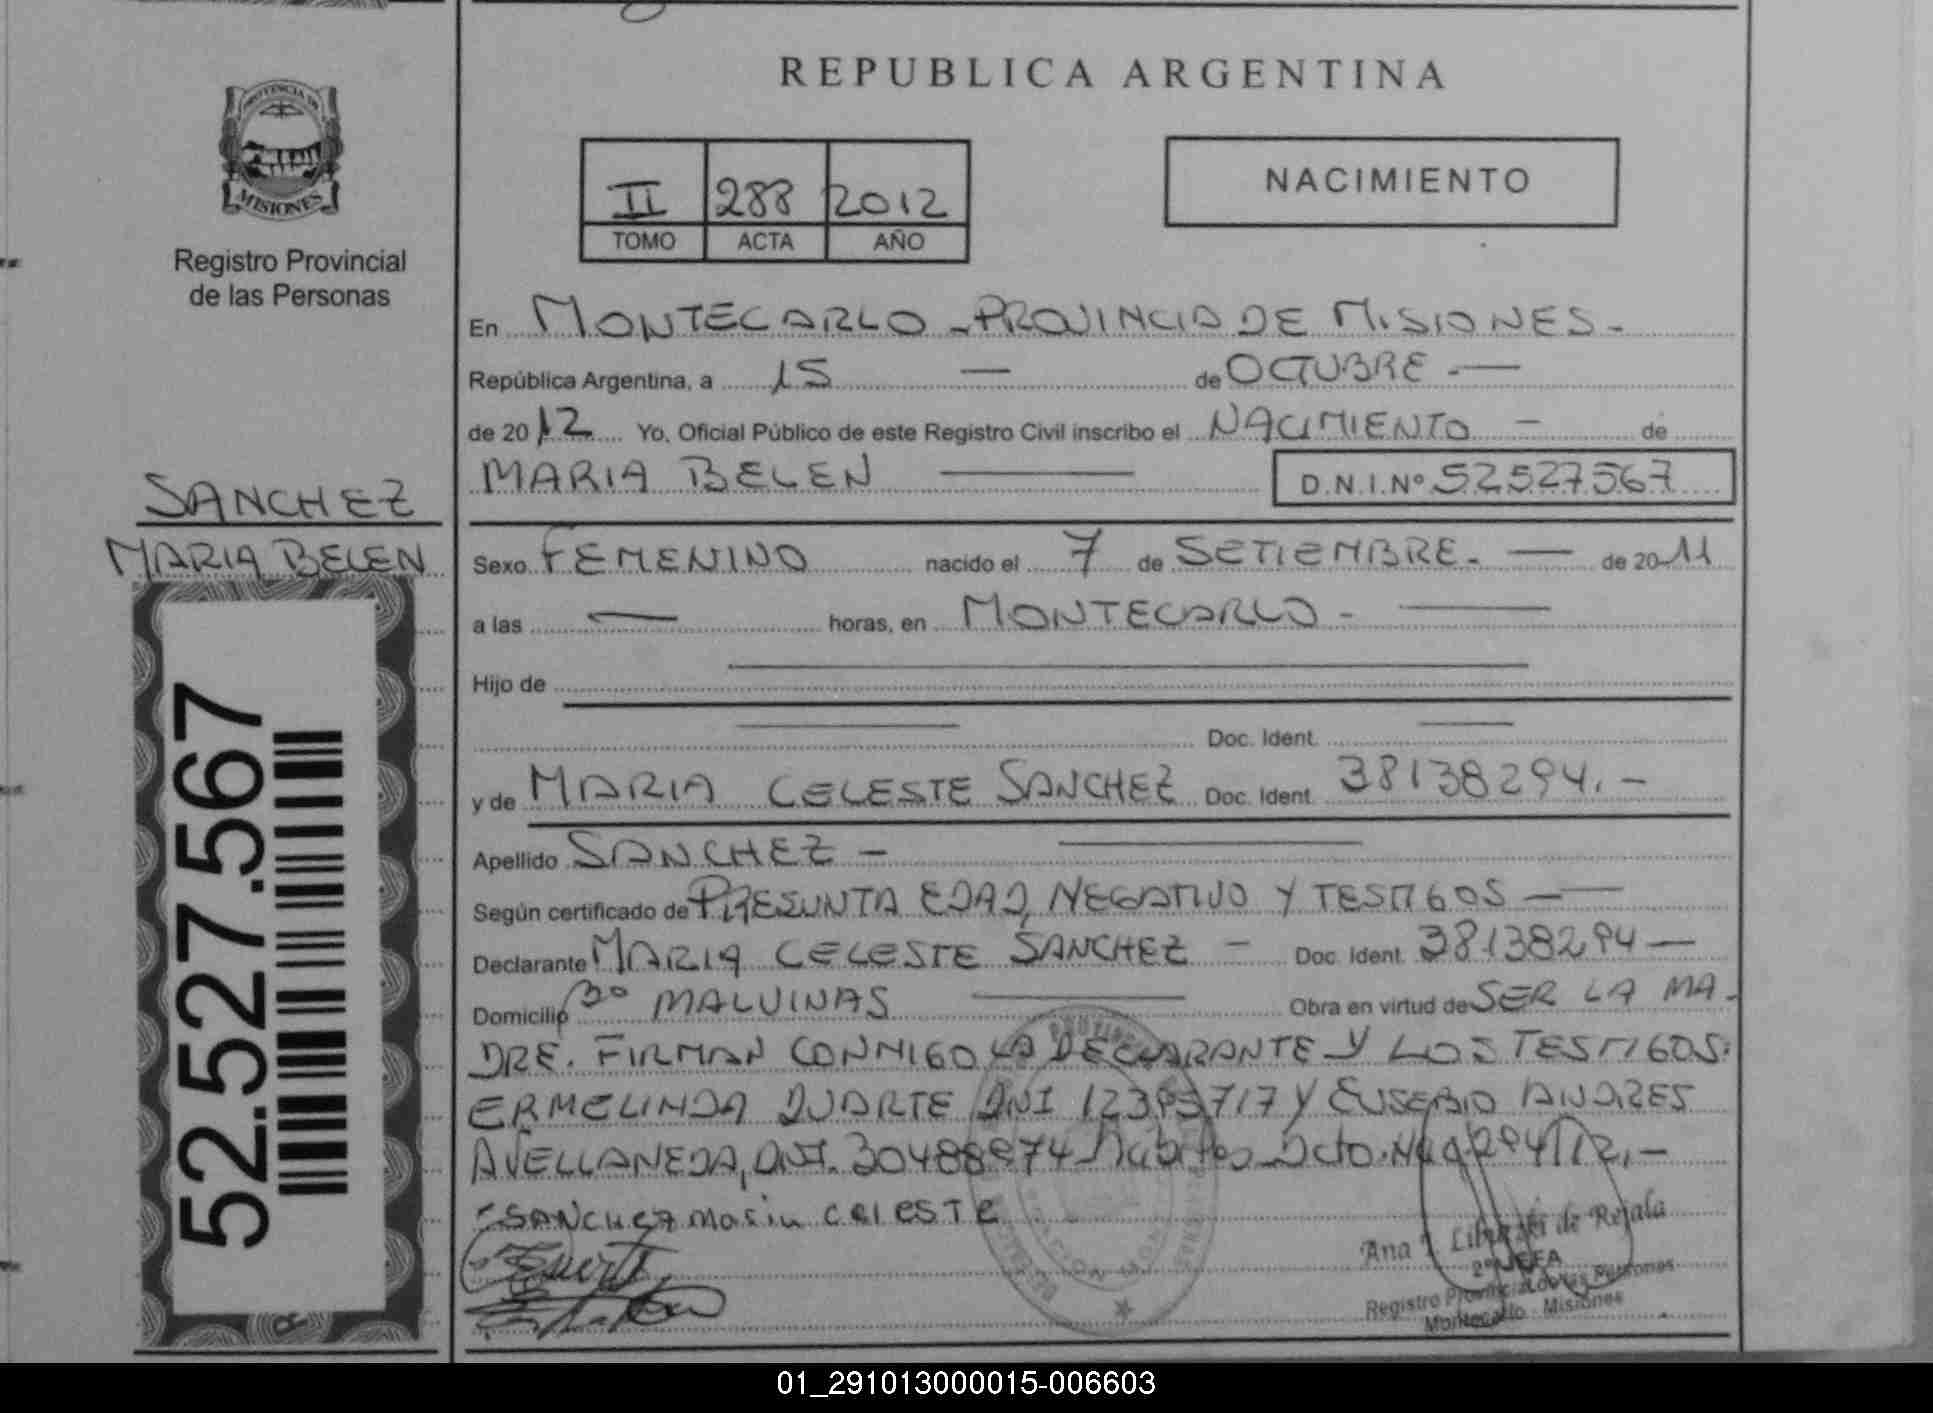 REPUBLICA ARGENTINA
PROVINCIA DE
MISIONES
Registro Provincial
de las Personas
II 288 2012
TOMO ACTA AÑO
NACIMIENTO
En MONTECARLO - PROVINCIA DE MISIONES -
República Argentina, a 15 — de OCTUBRE - —
de 2012 Yo, Oficial Público de este Registro Civil inscribo el NACIMIENTO - de
MARIA BELEN — D.N.I.Nº 52527567
SANCHEZ
MARIA BELEN
52.527.567
Sexo FEMENINO nacido el 7 de SETIEMBRE - — de 2011
a las — horas, en MONTECARLO - —
Hijo de —
— Doc. Ident. —
y de MARIA CELESTE SANCHEZ Doc. Ident. 38138294. -
Apellido SANCHEZ - —
Según certificado de PRESUNTA EDAD, NEGATIVO Y TESTIGOS - —
Declarante MARIA CELESTE SANCHEZ - Doc. Ident. 38138294 —
Domicilio Bº MALVINAS — Obra en virtud de SER LA MA-
DRE. FIRMAN CONMIGO LA DECLARANTE Y LOS TESTIGOS:
ERMELINDA DUARTE DNI Y EUSEBIO ANDRES
AVELLANEDA, DNI.
SANCHEZ Maria CELESTE
Ana de Rejala
2º JEFA
Registro Provincial de las Personas
Montecarlo - Misiones
01_291013000015-006603